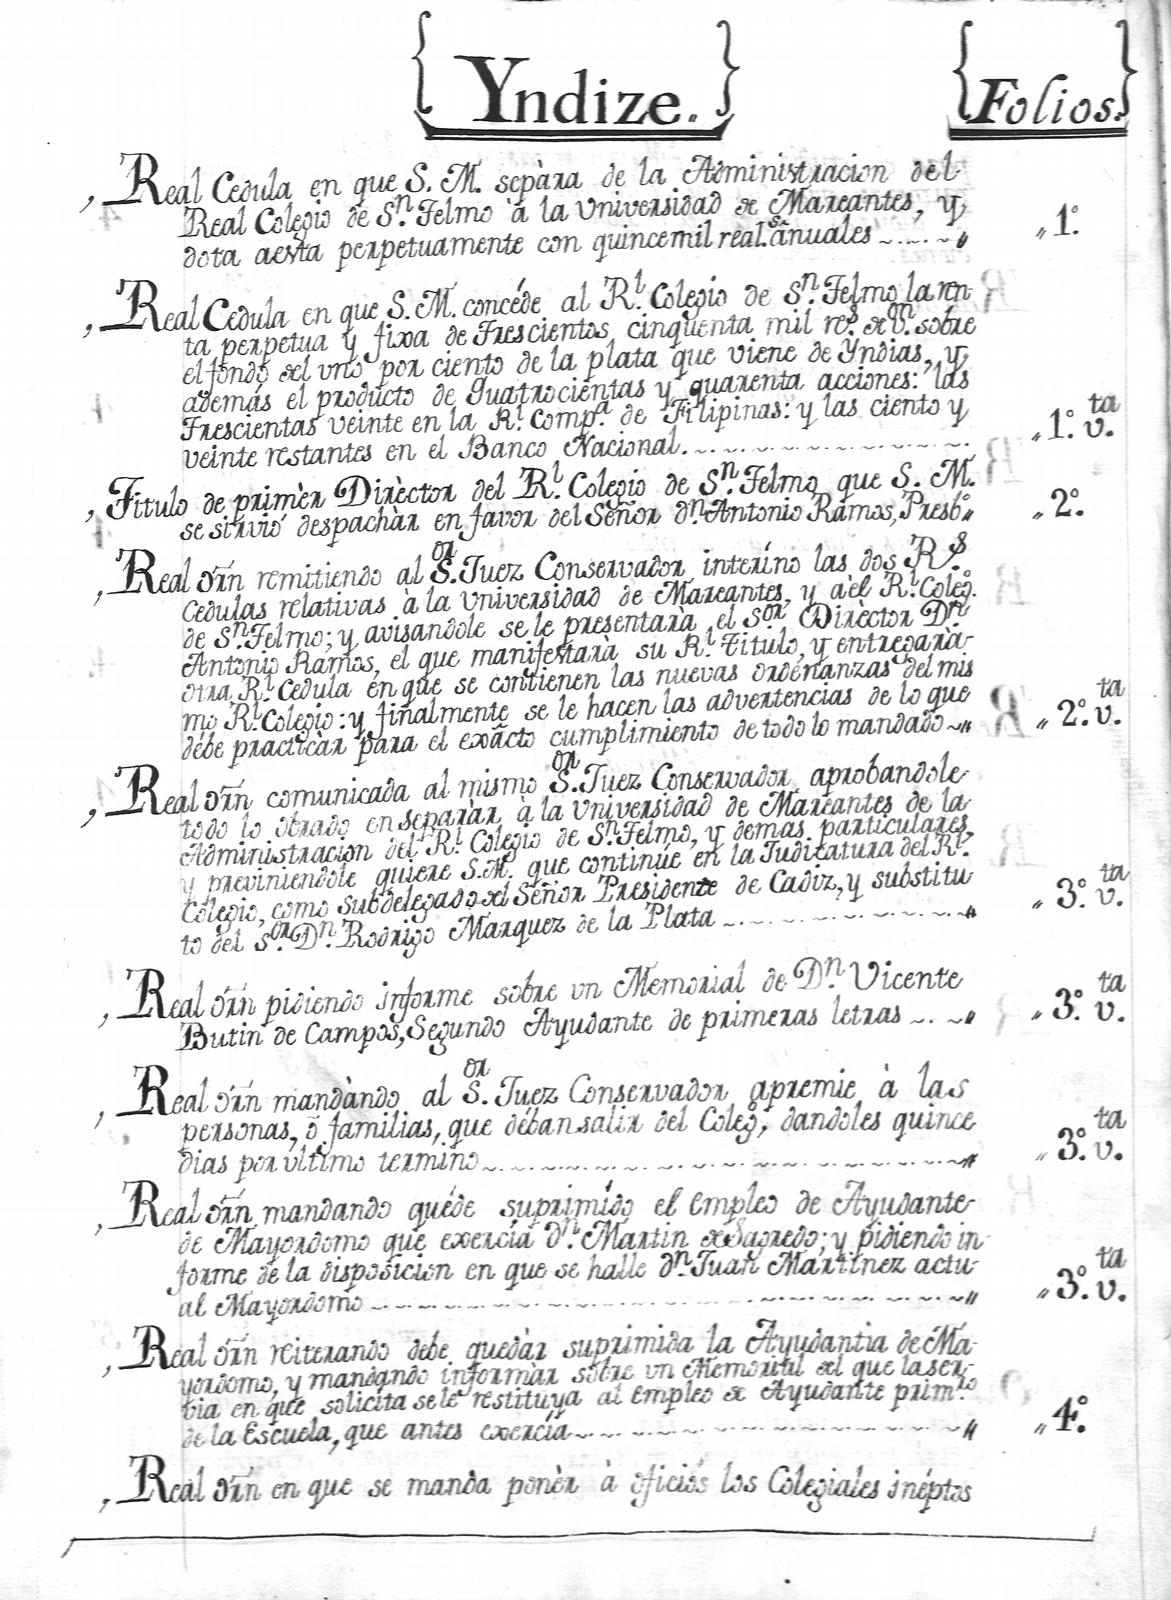 Yndize. Folios.
Real Cedula en que S. M. sepàra de la Administracion del
Real Colegio de S.n Telmo à la Universidad de Mareantes, y
dota aesta perpetuamente con quincemil real.s anuales „ 1.º
Real Cedula en que S. M. concéde al R.l Colegio de S.n Telmo la ren-
ta perpetua y fixa de Trescientos cinquenta mil r.s de v.on sobre
el fondo del uno por ciento de la plata que viene de Yndias, y
además el producto de Quatrocientas y quarenta acciones: las
Trescientas veinte en la R.l Comp.a de Filipinas: y las ciento y
veinte restantes en el Banco Nacional. „ 1.º v.ta
Titulo de primèr Dirèctor del R.l Colegio de S.n Telmo que S. M.
se sirvió despachàr en favor del Señor d.n Antonio Ramos, Presb.º „ 2.º
Real ôrn remitiendo al S.or Juez Conservador interíno las dos R.s
Cedulas relativas à la Universidad de Mareantes, y àel R.l Coleg.
de S.n Telmo; y avisandole se le presentarà el S.or Dirèctor D.n
Antonio Ramos, el que manifestarà su R.l Titulo, y entregarà
otra R.l Cedula en que se contienen las nuevas ordenanzas del mis
mo R.l Colegio: y finalmente se le hacen las advertencias de lo que
débe practicàr para el exâcto cumplimiento de todo lo mandado „ 2.º v.ta
Real ôrn comunicada al mismo S.or Juez Conservador aprobandole
todo lo obrado en separàr à la Universidad de Mareantes de la
Administracion del R.l Colegio de S.n Telmo, y demas particulares,
y previniendole quiere S. M. que continúe en la Judicatura del R.l
Colegio, como subdelegado del Señor Presidente de Cadiz, y substitu
to del S.or D.n Rodrigo Marquez de la Plata „ 3.º v.ta
Real ôrn pidiendo informe sobre un Memorial de D.n Vicente
Butin de Campos, Segundo Ayudante de primeras letras „ 3.º v.ta
Real ôrn mandàndo al S.or Juez Conservador apremie à las
personas, ô familias, que déban salir del Coleg.º, dandoles quince
dias por ultimo termino „ 3.º v.ta
Real ôrn mandando quéde suprimído el Empleo de Ayudante
de Mayordomo que exercia d.n Martin de Sagredo; y pidiendo in-
forme de la disposicion en que se halle d.n Juan Martinez actu-
al Mayordomo „ 3.º v.ta
Real ôrn reiterando debe quedàr suprimida la Ayudantia de Ma-
yordomo, y mandando informàr sobre un Memorial del que la ser-
via en que solicita se le restituya al Empleo de Ayudante prim.ro
de la Escuela, que antes exercia „ 4.º
Real ôrn en que se manda ponèr à oficiós los Colegiales inéptos